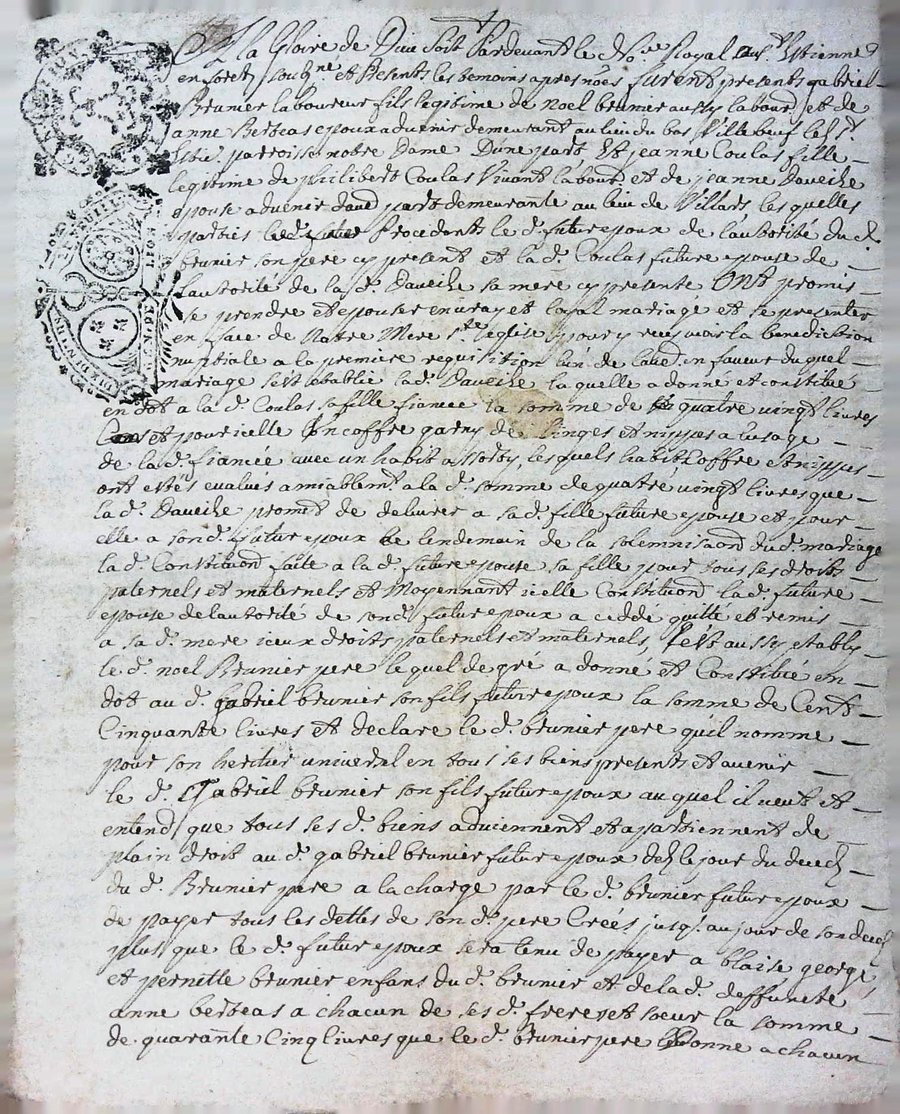 A la Gloire de Dieu soit Pardevant le Royal
en foret et Presents les temoins apres furent presents gabriel
Brunier laboureur fils legitime de noel brunier aussy labour et de
anne Berbeas epoux advenir demeurant au lieu du bas Villebeuf
parroisse notre Dame D'une part Et jeanne Coulas fille
legitime de philibert Coulas Vivant labour et de jeanne Daveize
epouse advenir daud part demeurante au lieu de Villars les quelles
parties Procedants le d. futur epoux de lautorité du d.
brunier son pere cy present et la d. Coulas future epouse de
Lautorité de la d. Daveize sa mere cy presente Ont promis
se prendre et epouser en vray et loyal mariage et se presenter
en face de Notre Mere Ste. eglise pour y recevoir la benediction
nuptiale a la premiere requisition lun de laud. en faveur du quel
mariage sest etablie lad. Daveize la quelle a donné et constitué
en dot a la d. Coulas sa fille fiancée la somme de quatre vingt livres
et pour icelle Un coffre garny de Linges et nippes a lusage
de la d. fiancée avec un habit assorty, les quels habit Coffre et nippes
ont estés evalués amiablemt. a la d. somme de quatre vingt livres que
la d. Daveize promet de delivrer a sa d. fille future epouse et pour
elle a son d. futur epoux le lendemain de la solemnisaōn du d. mariage
la d. Constituōn faite a la d. future epouse sa fille pour tous ses droits
paternels et maternels et Moyennant icelle Constituōn la d. future
epouse de lautorité de son d. futur epoux a ceddé quitté et remis
a sa d. mere iceux droits paternels et maternels, sest aussy etably
le d. noel Brunier pere le quel de gré a donné et Constitué en
dot au d. gabriel brunier son fils futur epoux la somme de Cent
Cinquante livres et declare le d. brunier pere quil nomme
pour son heritier universal en tous ses biens presents et avenir
le d. Gabriel brunier son fils futur epoux au quel il veut et
entend que tous ses d. biens adviennent et apartiennent de
plain droit au d. gabriel brunier futur epoux des le jour du decez
du d. Brunier pere a la charge par le d. brunier futur epoux
de payer tous les dettes de son d. pere Creés jusq. au jour de son decez
plus que le d. futur epoux sera tenu de payer a blaise george
et pernette brunier enfans du d. brunier et de la d. deffuncte
anne berbeas a chacun de ses d. freres et soeur la somme
de quarante Cinq livres que le d. brunier pere donne a chacun